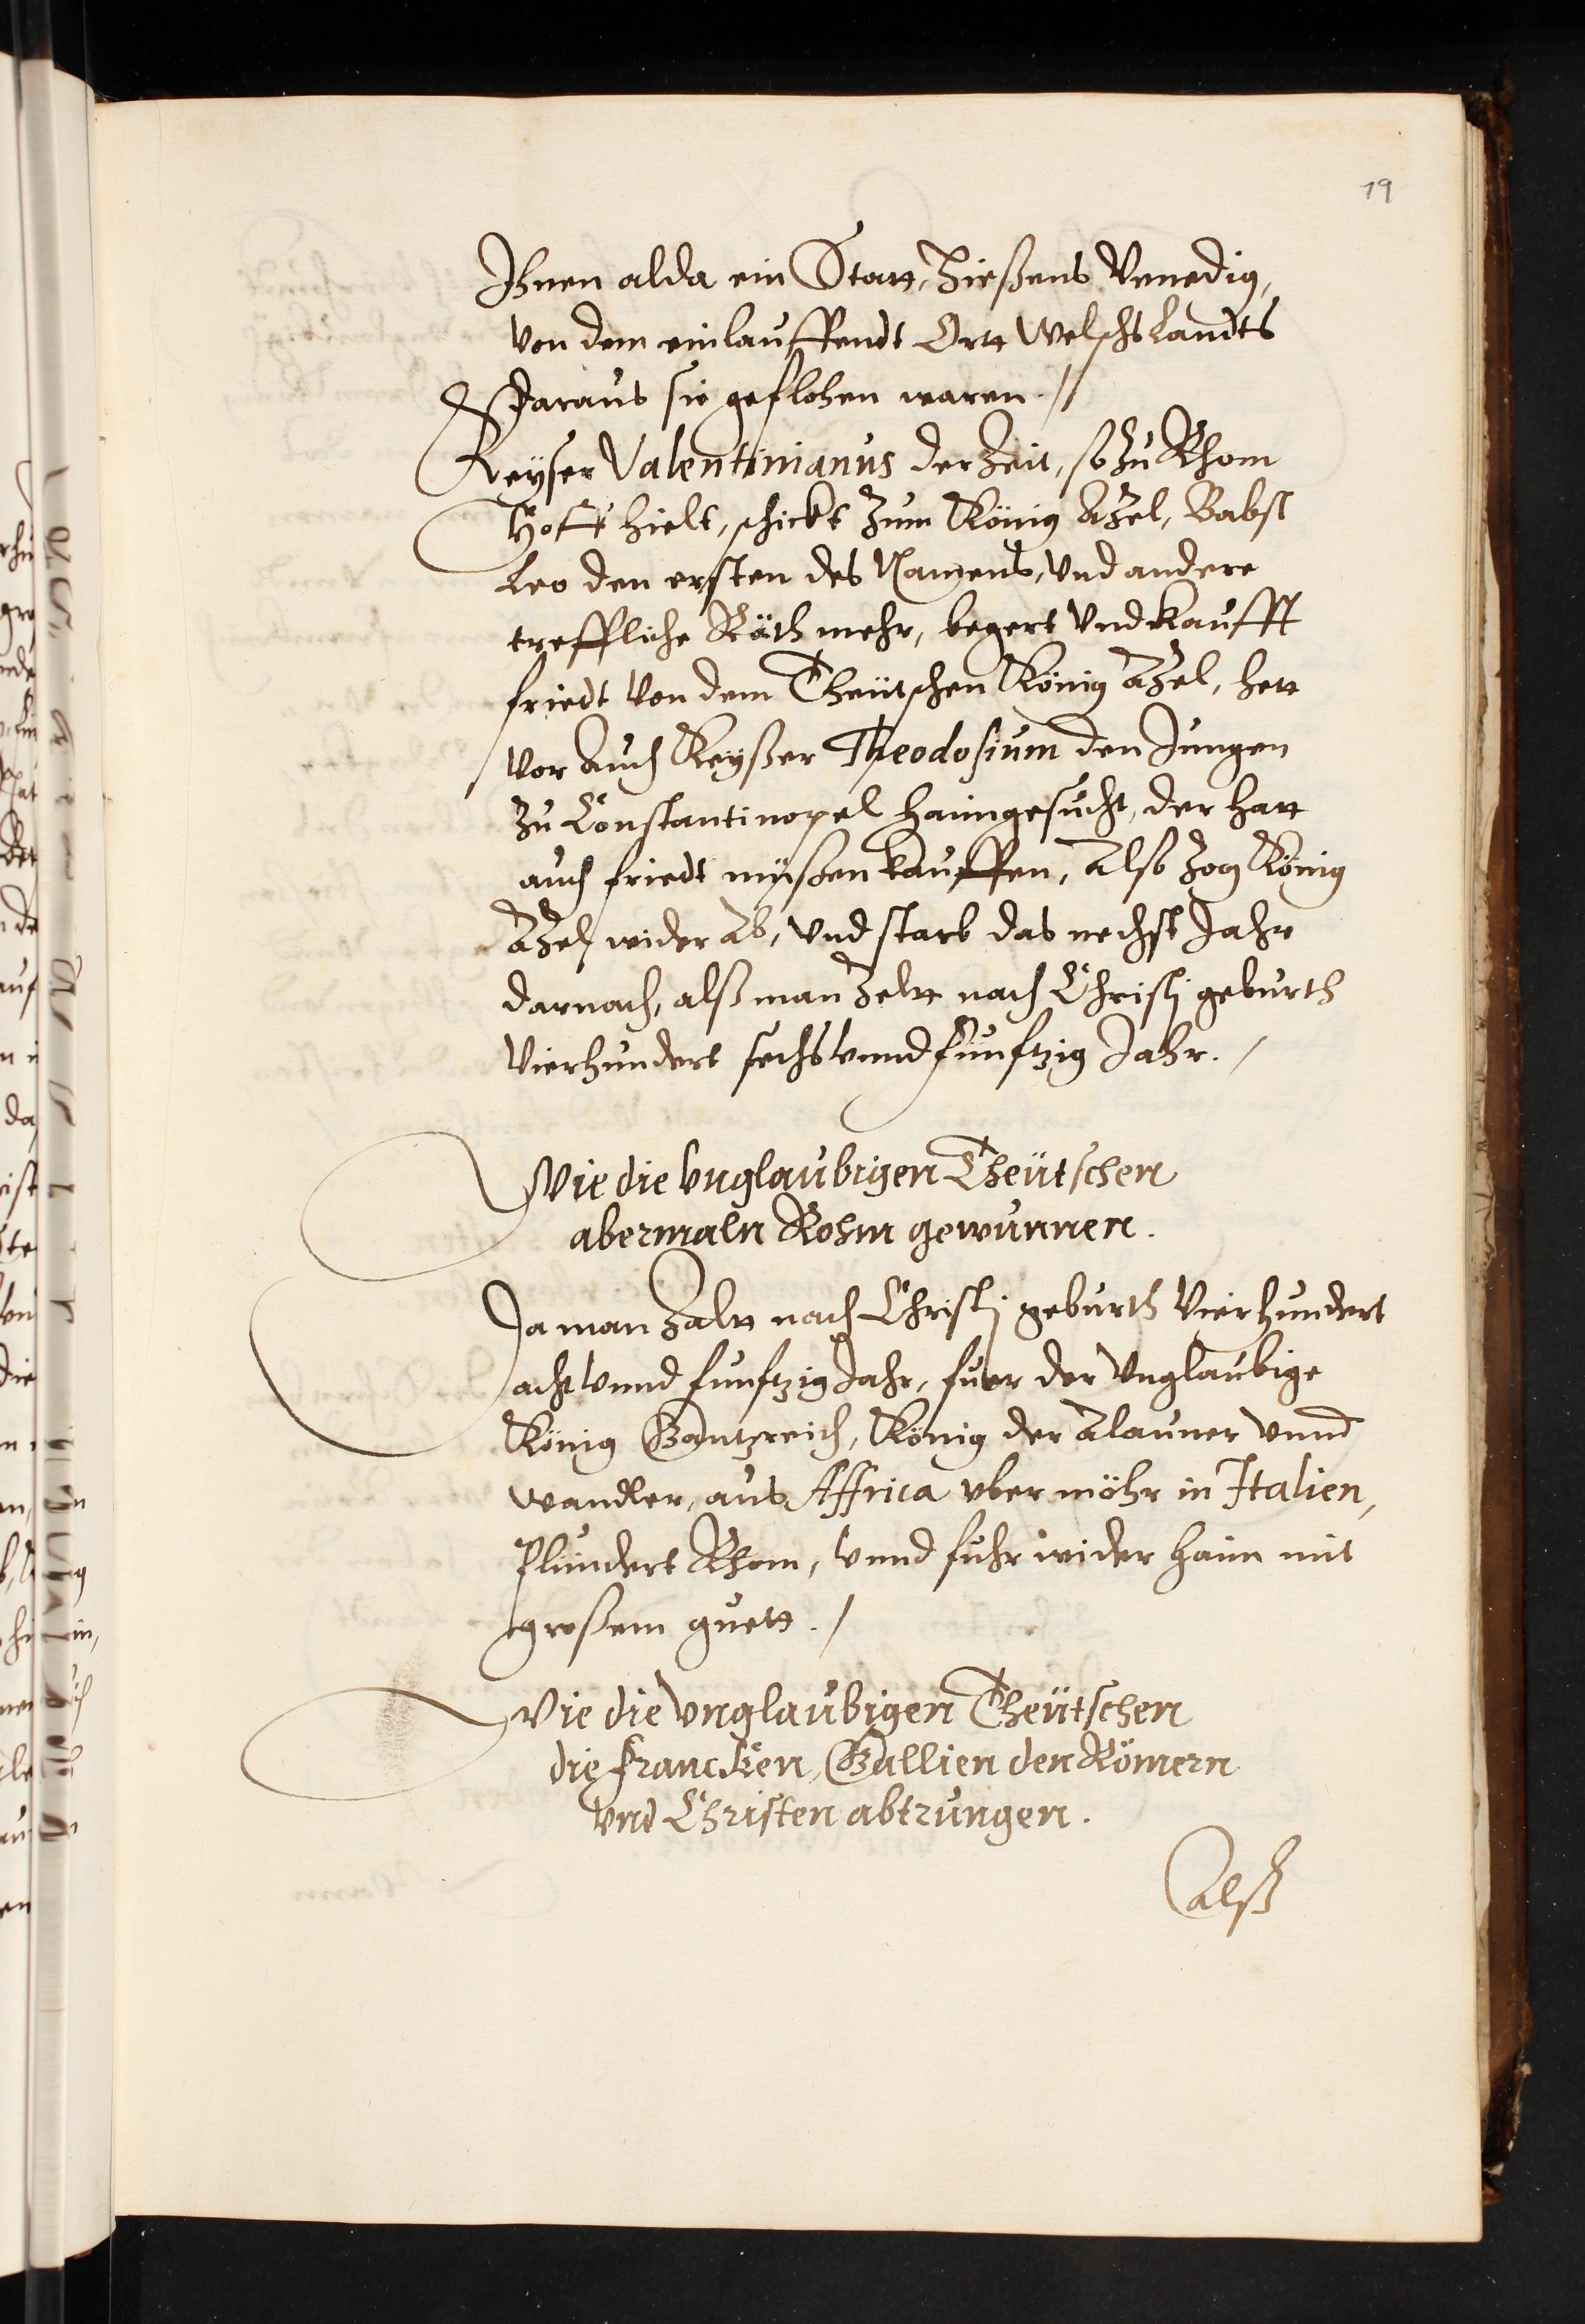 19
Ihnen alda ein Statt, hießens Venedig,
von dem einlauffendt Ortt Welschs Landts
daraus sie geflohen waren. //
Keyser Valentinianus der Zeit, so zu Rhom
Hoff hielt, schickt zum König Azel, Babst
Leo den ersten des Namens, vnd andere
treffliche Räth mehr, begert vnd kaufft
friedt von dem Theütschen König Azel, hett
vor auch Keyßer Theodosium den Jungen
zu Constantinopel haimgesucht, der hatt
auch friedt müßen kauffen, Also zog König
Azel wider ab, vnd starb das nechst Jahr
darnach, alß man zeltt nach Christj geburth
vierhundert sechs vnnd funfftzig Jahr. /
Wie die vnglaubigen Theütschen
abermaln Rohm gewunnen.
Da man zaltt nach Christj geburth vierhundert
acht vnnd funfftzig Jahr, fuer der vnglaubige
König Gantzreich, König der Alauner vnnd
Wandler, aus Affrica vber möhr in Italien,
Plündert Rhom, vnnd fuhr wider haim mit
großem guett. /
Wie die vnglaubigen Theütschen
die francken, Gallien den Römern
vnd Christen abtrungen.
alß